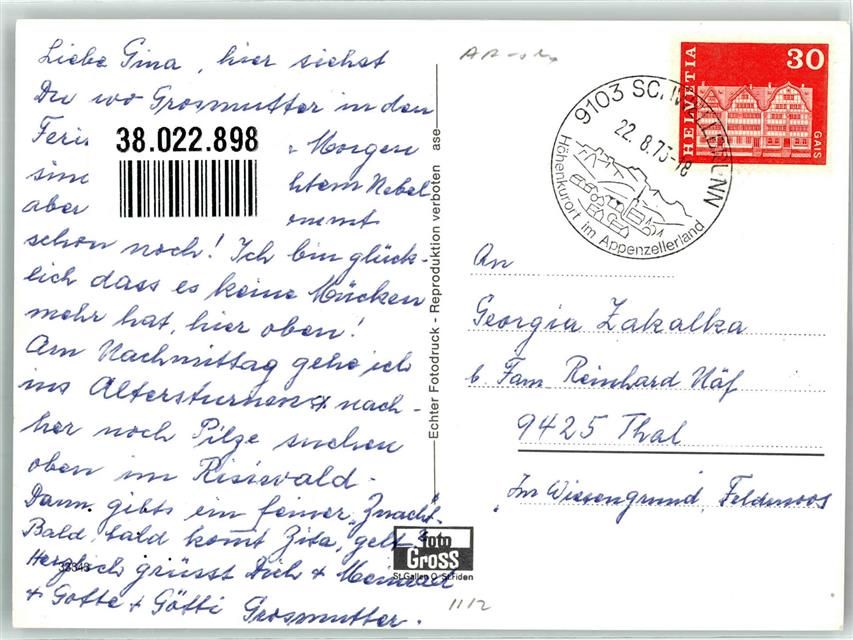 Liebe Gina, hier siehst
Du wo Grosmutter in den
Feri
Morgen
sind
chtem Nebel
aber
kommt
schon noch! Ich bin glück-
lich dass es keine Mücken
mehr hat, hier oben!
Am Nachmittag gehe ich
ins Altersturnen & nach-
her noch Pilze suchen
oben im Risiwald.
Dann gibts ein feiner "Znacht".
Bald, bald komt Zita, gelt?
Herzlich grüsst Dich +
+ Gotte + Götti Grosmutter.
38.022.898
33343
Echter Fotodruck - Reproduktion verboten ase
foto
Gross
St.Gallen O St.Fiden
1112
HELVETIA
30
GAIS
9103 SCHWELLBRUNN
22.8.73-18
Höhenkurort im Appenzellerland
An
Georgia Zakalka
b. Fam. Reinhard Näf
9425 Thal
"Im Wiesengrund, Feldmoos